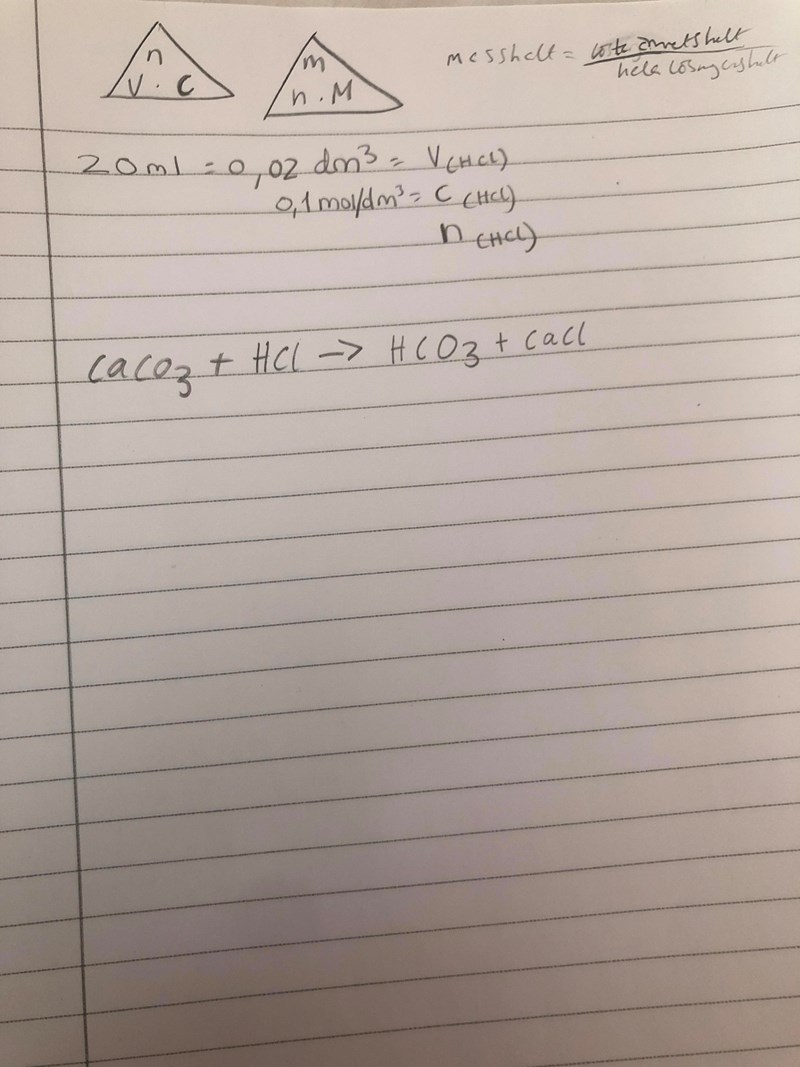 n
V · C
m
n · M
messhalt = ämnetshalt
hela lösningshalt
20ml = 0,02 dm³ = V(HCl)
0,1 mol/dm³ = C (HCl)
n (HCl)
CaCO₃ + HCl -> HCO₃ + CaCl